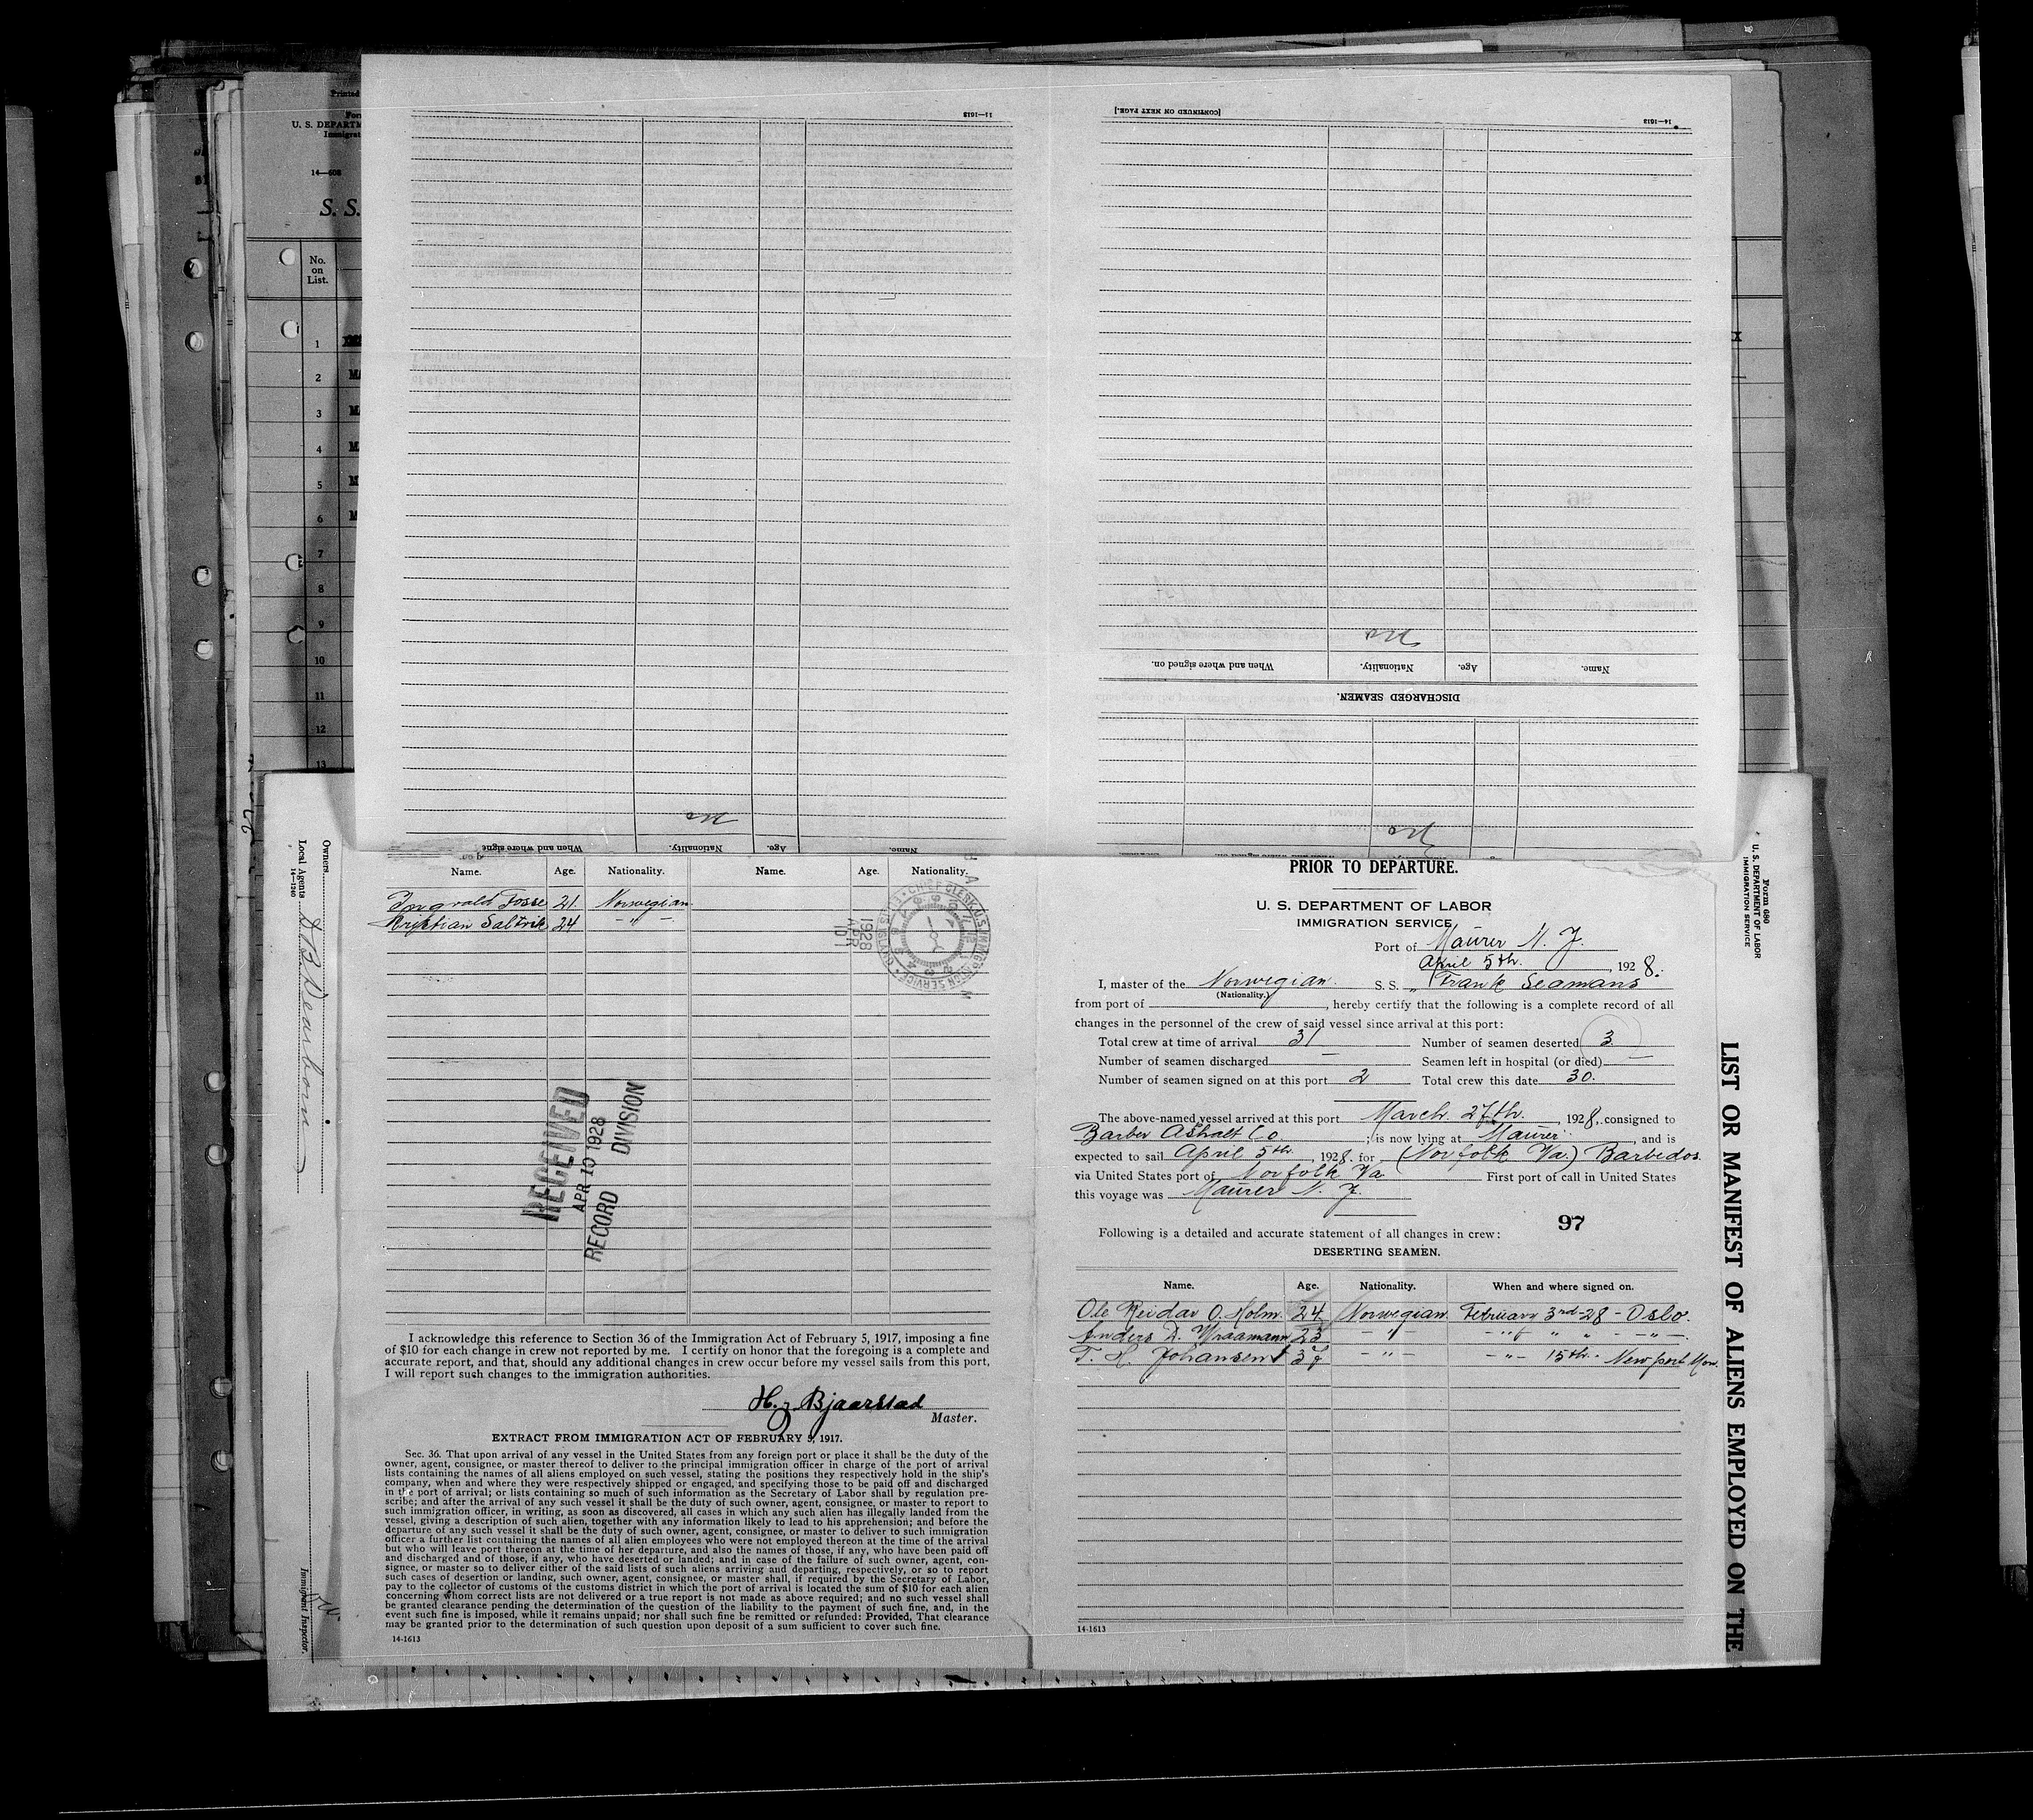 Printed
U. S. DEPARTM
Immigrat
14—608
S. S.
No.
on
List.
1
2
3
4
5
6
7
8
9
10
11
12
13
11—1613
[CONTINUED ON NEXT PAGE.]
14—1613
No
Name.
Age.
Nationality.
When and where signed on.
DISCHARGED SEAMEN.
No
No
Name.
Age.
Nationality.
When and where signe
Owners
Local Agents D B Dearborn
14—1240
Immigrant Inspector.
Name. Age. Nationality. Name. Age. Nationality.
Ingvald Fosse 21. Norwegian
Krystian Saltvik 24 — " —
CHIEF CLERK, U.S. IMMIGRATION SERVICE
1928
APR
10
RECEIVED
APR 10 1928
RECORD DIVISION
I acknowledge this reference to Section 36 of the Immigration Act of February 5, 1917, imposing a fine
of $10 for each change in crew not reported by me. I certify on honor that the foregoing is a complete and
accurate report, and that, should any additional changes in crew occur before my vessel sails from this port,
I will report such changes to the immigration authorities.
H. Bjaarstad
Master.
EXTRACT FROM IMMIGRATION ACT OF FEBRUARY 5, 1917.
Sec. 36. That upon arrival of any vessel in the United States from any foreign port or place it shall be the duty of the
owner, agent, consignee, or master thereof to deliver to the principal immigration officer in charge of the port of arrival
lists containing the names of all aliens employed on such vessel, stating the positions they respectively hold in the ship's
company, when and where they were respectively shipped or engaged, and specifying those to be paid off and discharged
in the port of arrival; or lists containing so much of such information as the Secretary of Labor shall by regulation pre-
scribe; and after the arrival of any such vessel it shall be the duty of such owner, agent, consignee, or master to report to
such immigration officer, in writing, as soon as discovered, all cases in which any such alien has illegally landed from the
vessel, giving a description of such alien, together with any information likely to lead to his apprehension; and before the
departure of any such vessel it shall be the duty of such owner, agent, consignee, or master to deliver to such immigration
officer a further list containing the names of all alien employees who were not employed thereon at the time of the arrival
but who will leave port thereon at the time of her departure, and also the names of those, if any, who have been paid off
and discharged and of those, if any, who have deserted or landed; and in case of the failure of such owner, agent, con-
signee, or master so to deliver either of the said lists of such aliens arriving and departing, respectively, or so to report
such cases of desertion or landing, such owner, agent, consignee, or master shall, if required by the Secretary of Labor,
pay to the collector of customs of the customs district in which the port of arrival is located the sum of $10 for each alien
concerning whom correct lists are not delivered or a true report is not made as above required; and no such vessel shall
be granted clearance pending the determination of the question of the liability to the payment of such fine, and, in the
event such fine is imposed, while it remains unpaid; nor shall such fine be remitted or refunded: Provided, That clearance
may be granted prior to the determination of such question upon deposit of a sum sufficient to cover such fine.
14-1613
PRIOR TO DEPARTURE.
U. S. DEPARTMENT OF LABOR
IMMIGRATION SERVICE
Port of Maurer N. J.
April 5th. , 1928.
I, master of the Norwegian. S. S. „ Frank Seamans
(Nationality.)
from port of , hereby certify that the following is a complete record of all
changes in the personnel of the crew of said vessel since arrival at this port:
Total crew at time of arrival 31 Number of seamen deserted 3
Number of seamen discharged — Seamen left in hospital (or died) —
Number of seamen signed on at this port 2 Total crew this date 30.
The above-named vessel arrived at this port March 27th. , 1928, consigned to
Barber Ashalt Co. ; is now lying at Maurer , and is
expected to sail April 5th , 1928 for (Norfolk Va.) Barbedos
via United States port of Norfolk Va First port of call in United States
this voyage was Maurer N. J.
97
Following is a detailed and accurate statement of all changes in crew:
DESERTING SEAMEN.
Name. Age. Nationality. When and where signed on.
Ole Reidar O. Holm. 24 Norwegian February 3rd-28 - Oslo.
Anders D. 23 — " — — " — " " — " —
T. H. Johansen — " — — " — 15th. - Newport Mon.
14-1613
Form 680
U. S. DEPARTMENT OF LABOR
IMMIGRATION SERVICE
LIST OR MANIFEST OF ALIENS EMPLOYED ON THE